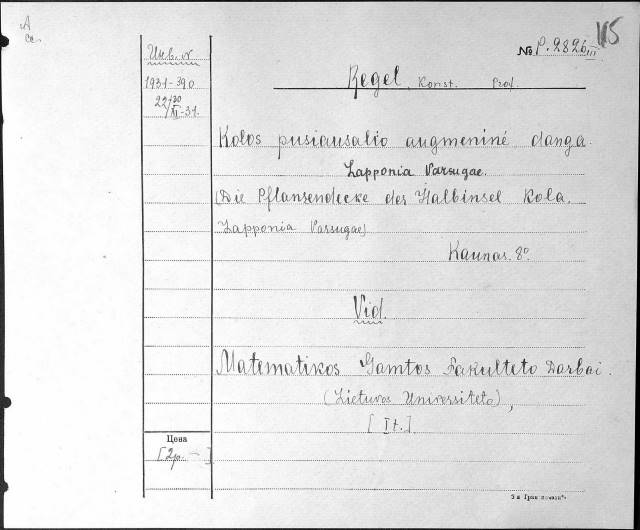 A
№ P.2826 III
Инв. №
1931-390
22/XI-31.
Regel, Konst. Prof.
Kolos pusiausalio augmeninė danga.
Lapponia Varsugae.
(Die Pflanzendecke des Halbinsel Kola.
Lapponia Varsugae)
Kaunas. 8°.
Vid.
Matematikos Gamtos Fakulteto Darbai.
(Lietuvos Universiteto),
[I t.]
Цена
[2р. - ]